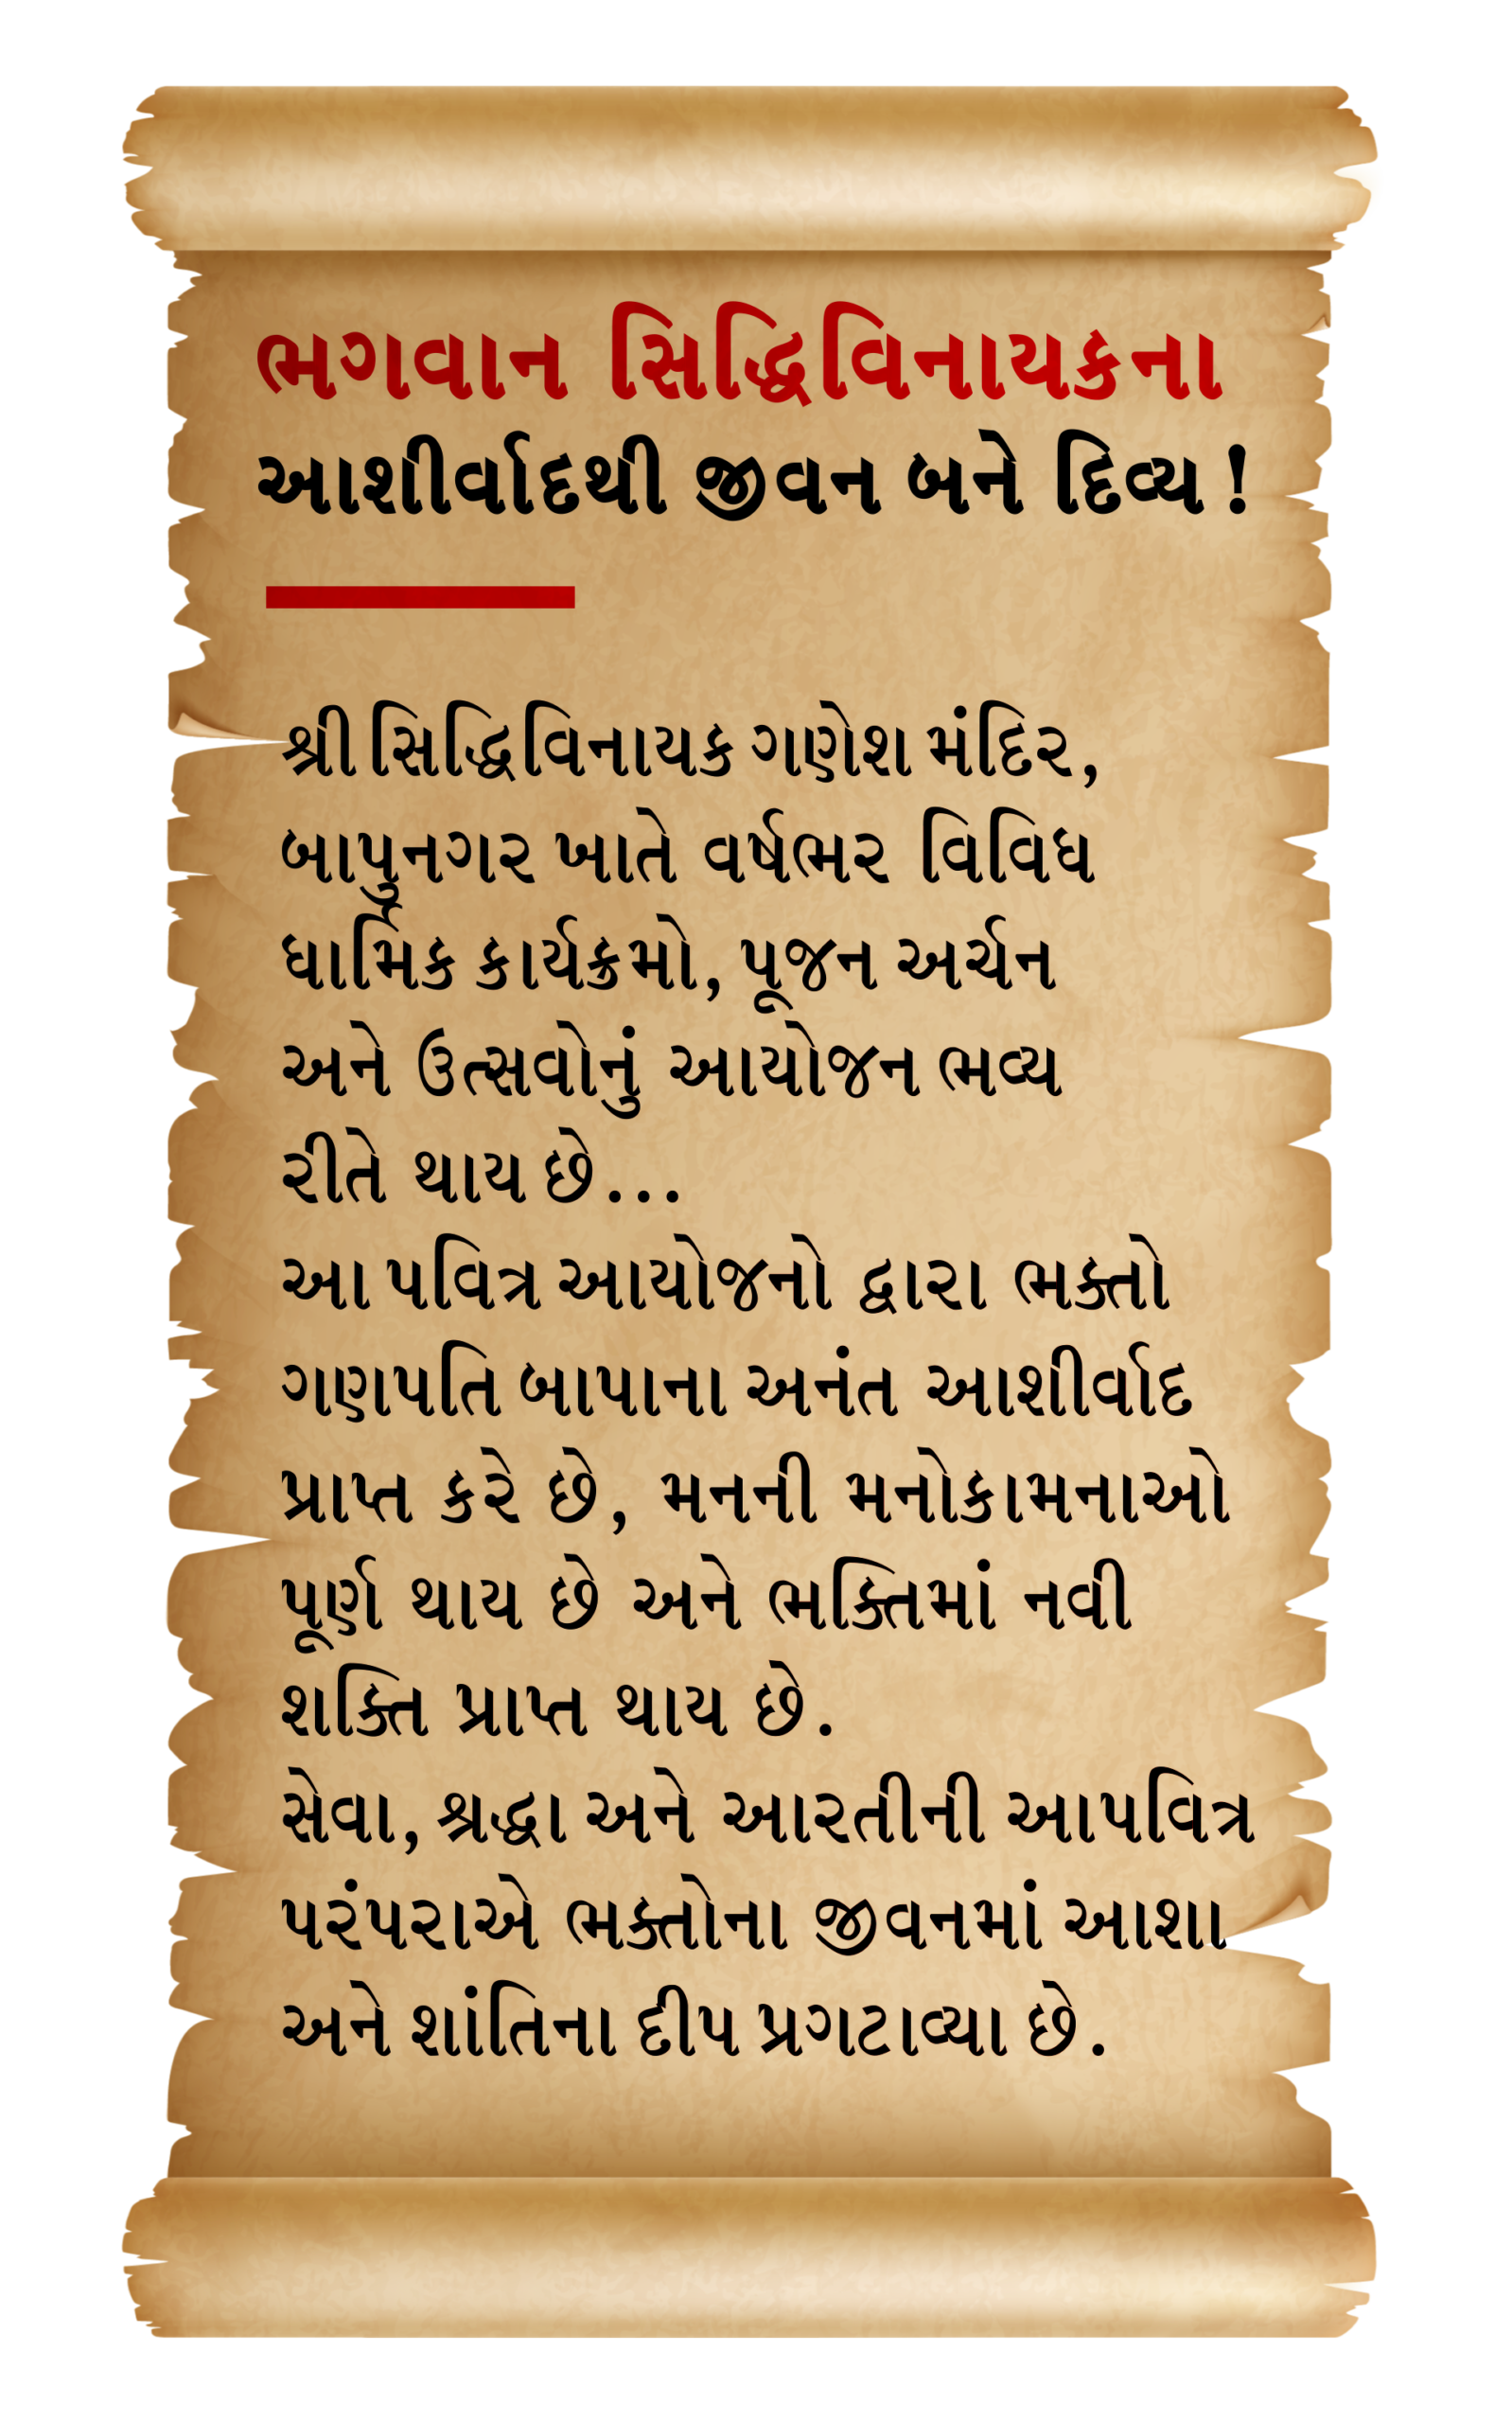 ભગવાન સિદ્ધિવિનાયકના
આશીર્વાદથી જીવન બને દિવ્ય !
શ્રી સિદ્ધિવિનાયક ગણેશ મંદિર,
બાપુનગર ખાતે વર્ષભર વિવિધ
ધાર્મિક કાર્યક્રમો, પૂજન અર્ચન
અને ઉત્સવોનું આયોજન ભવ્ય
રીતે થાય છે...
આ પવિત્ર આયોજનો દ્વારા ભક્તો
ગણપતિ બાપાના અનંત આશીર્વાદ
પ્રાપ્ત કરે છે, મનની મનોકામનાઓ
પૂર્ણ થાય છે અને ભક્તિમાં નવી
શક્તિ પ્રાપ્ત થાય છે.
સેવા, શ્રદ્ધા અને આરતીની આપવિત્ર
પરંપરાએ ભક્તોના જીવનમાં આશા
અને શાંતિના દીપ પ્રગટાવ્યા છે.